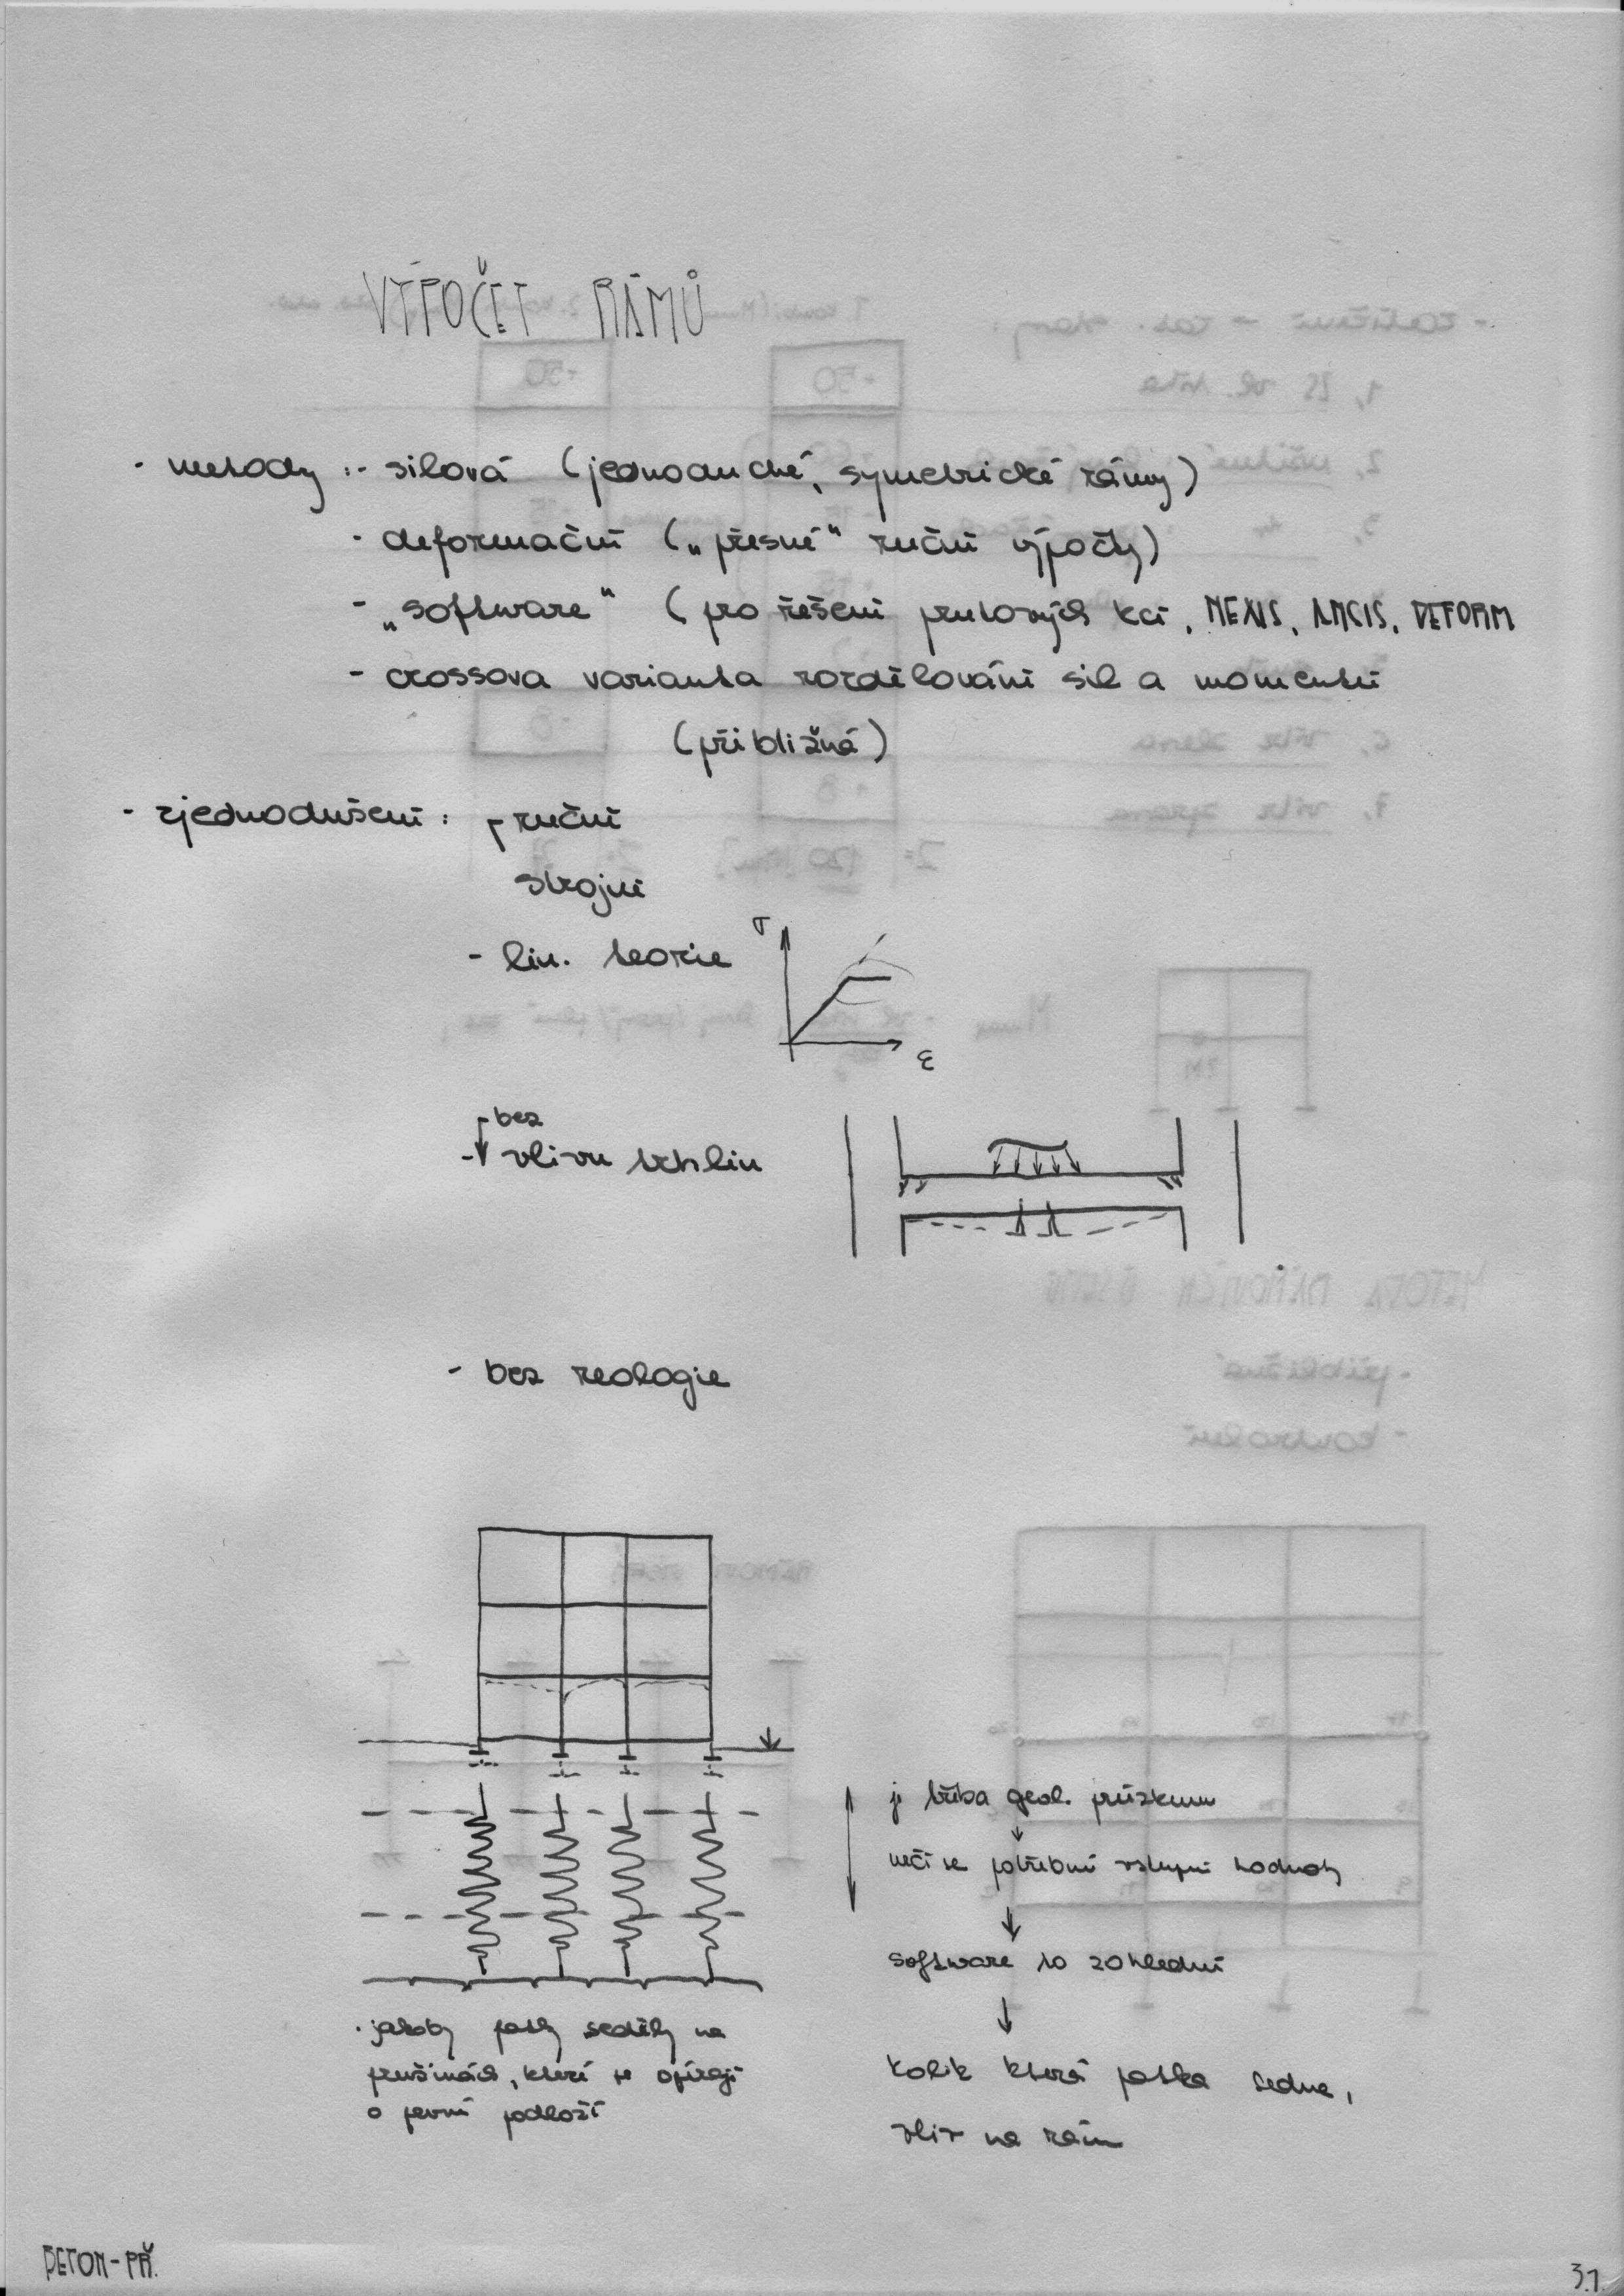 VÝPOČET RÁMŮ
- metody :- silová (jednoduché, symetrické rámy)
- deformační („přesné" ruční výpočty)
- „software" (pro řešení prutových kcí, NEXIS, ANSIS, DEFORM
- crossova varianta rozdělování sil a momentů
(přibližná)
- zjednodušení : - ruční
strojní
- lin. teorie
σ
ε
bez
- vlivu trhlin
- bez reologie
je třeba geol. průzkum
určí se potřebné vstupní hodnoty
software to zohlední
kolik která patka sedne,
vliv na rám
- jakoby patky seděly na
pružinách, které se opírají
o pevné podloží
BETON-PŘ.
3.1